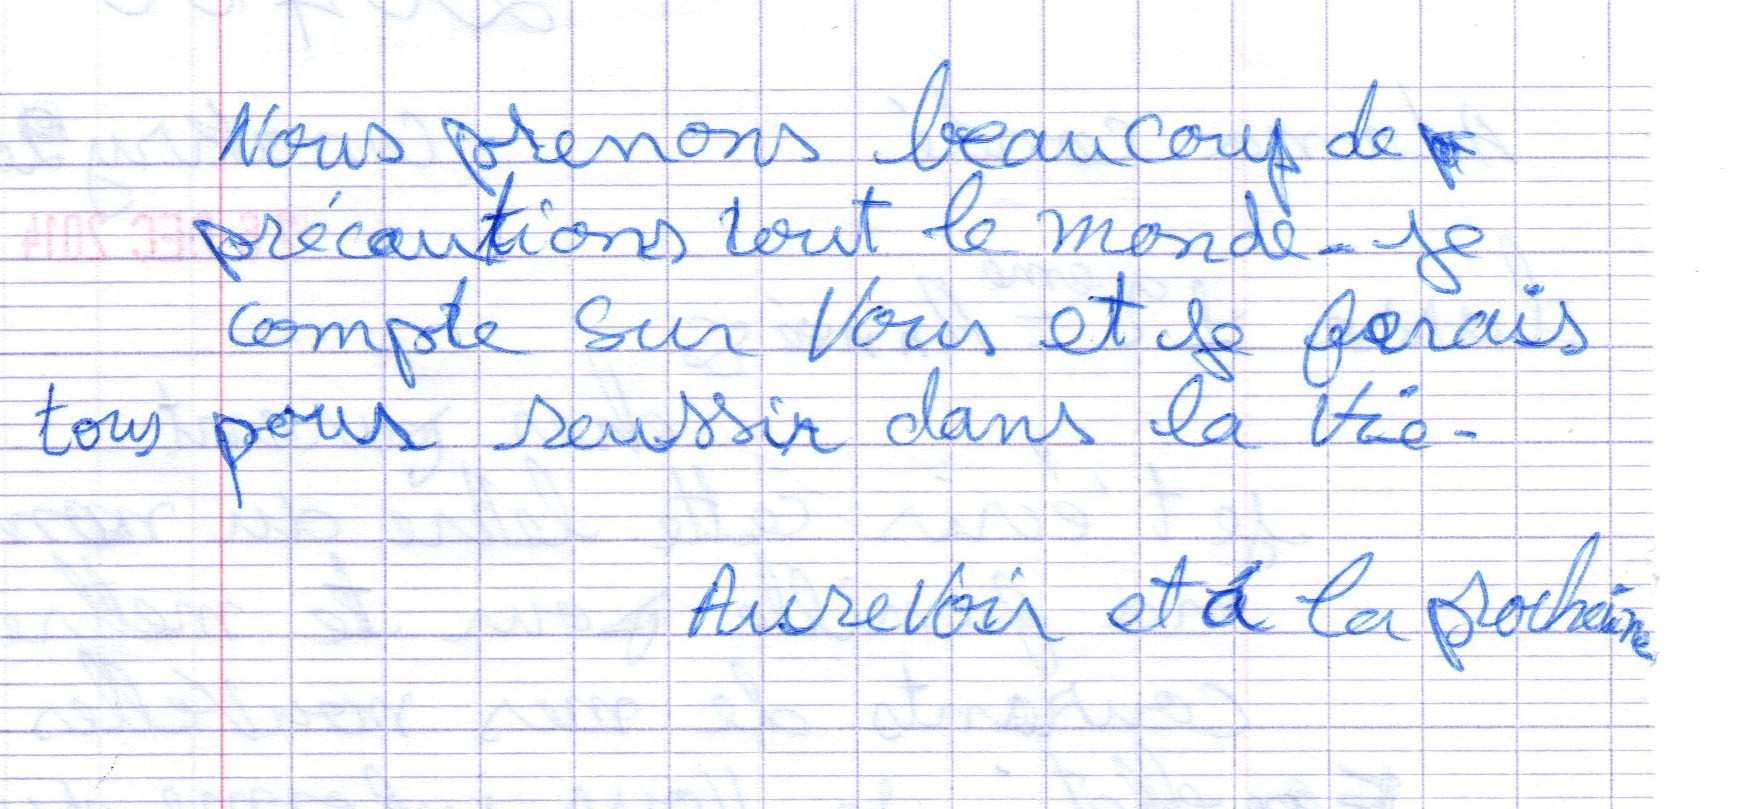 Nous prenons beaucoup de
précautions tout le monde - je
compte sur Vous et je ferais
tous pour reussir dans la Vie -
Aurevoir et à la prochaine